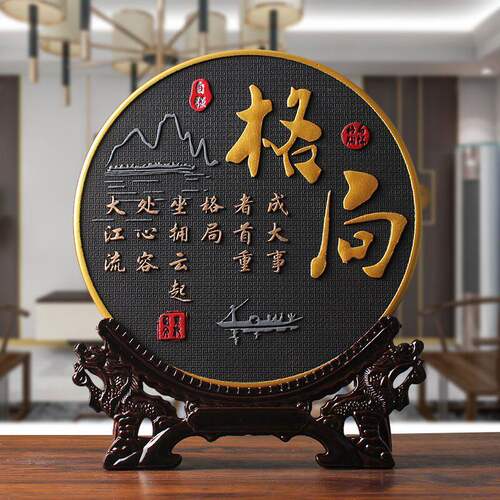 格局
成大事
者首重
格局
坐拥云起
处心容
大江流